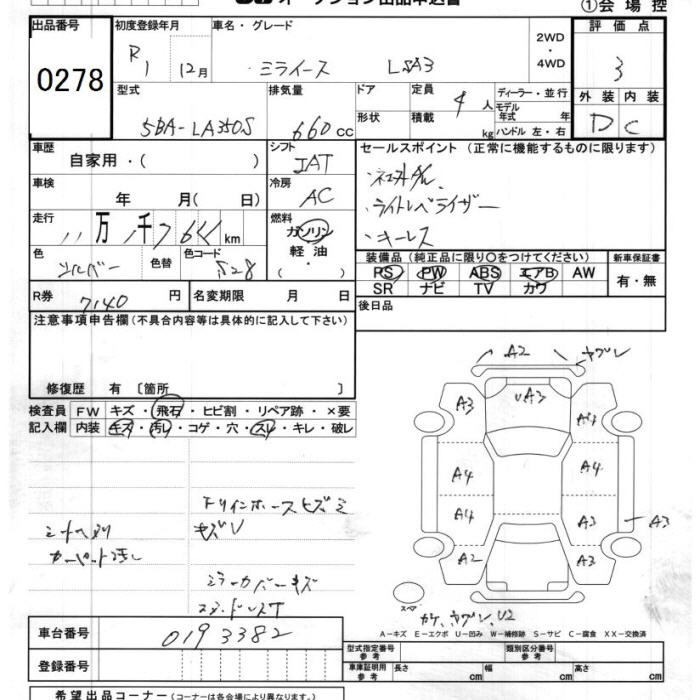 オークション出品申込書
①会場控
出品番号 0278
初度登録年月 R1 12月
車名・グレード ミライース LSA3
2WD・4WD
評価点 3
型式 5BA-LA350S
排気量 660cc
ドア 形状
定員 4人
積載 kg
ディーラー・並行
モデル年式 年
ハンドル 左・右
外装 D
内装 C
車歴 自家用・( )
シフト IAT
セールスポイント (正常に機能するものに限ります)
ライトレベライザー
キーレス
車検 年 月( 日)
冷房 AC
走行 11万 1千 7641 km
燃料 ガソリン 軽油 ・( )
色 シルバー
色替
色コード S28
装備品 (純正品に限り○をつけてください)
PS PW ABS エアB AW
SR ナビ TV カワ
新車保証書 有・無
R券 7140円
名変期限 月 日
後日品
注意事項申告欄 (不具合内容等は具体的に記入して下さい)
修復歴 有 〔箇所 〕
検査員記入欄
FW キズ・飛石・ヒビ割・リペア跡・×要
内装 キズ・汚れ・コゲ・穴・スレ・キレ・破レ
キズU
ミラーカバーキズ
A2
A3
UA3
A4
A4
A4
A4
A3
A3
A2
A3
スペア
U2
A－キズ E－エクボ U－凹み W－補修跡 S－サビ C－腐食 XX－交換済
車台番号 0193382
登録番号
型式指定番号 参考
類別区分番号 参考
車庫証明用 参考 長さ cm 幅 cm 高さ cm
希望出品コーナー (コーナーは各会場により異なります。)